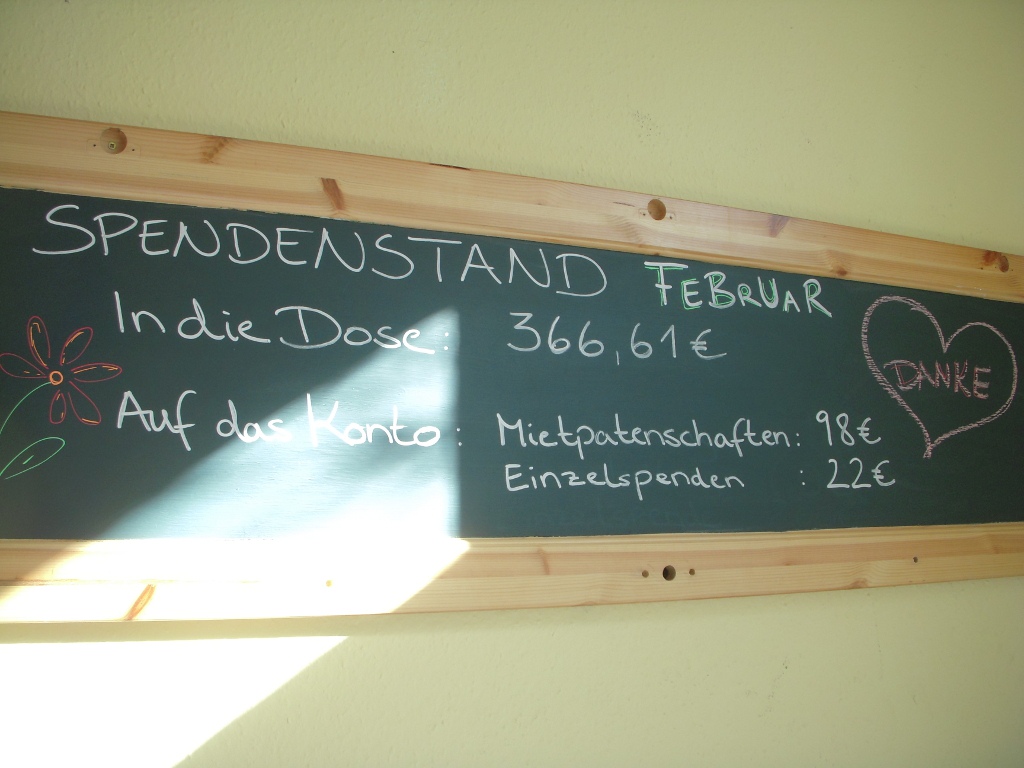 SPENDENSTAND FEBRUAR
In die Dose: 366,61€
Auf das Konto: Mietpatenschaften: 98€
Einzelspenden : 22€
DANKE